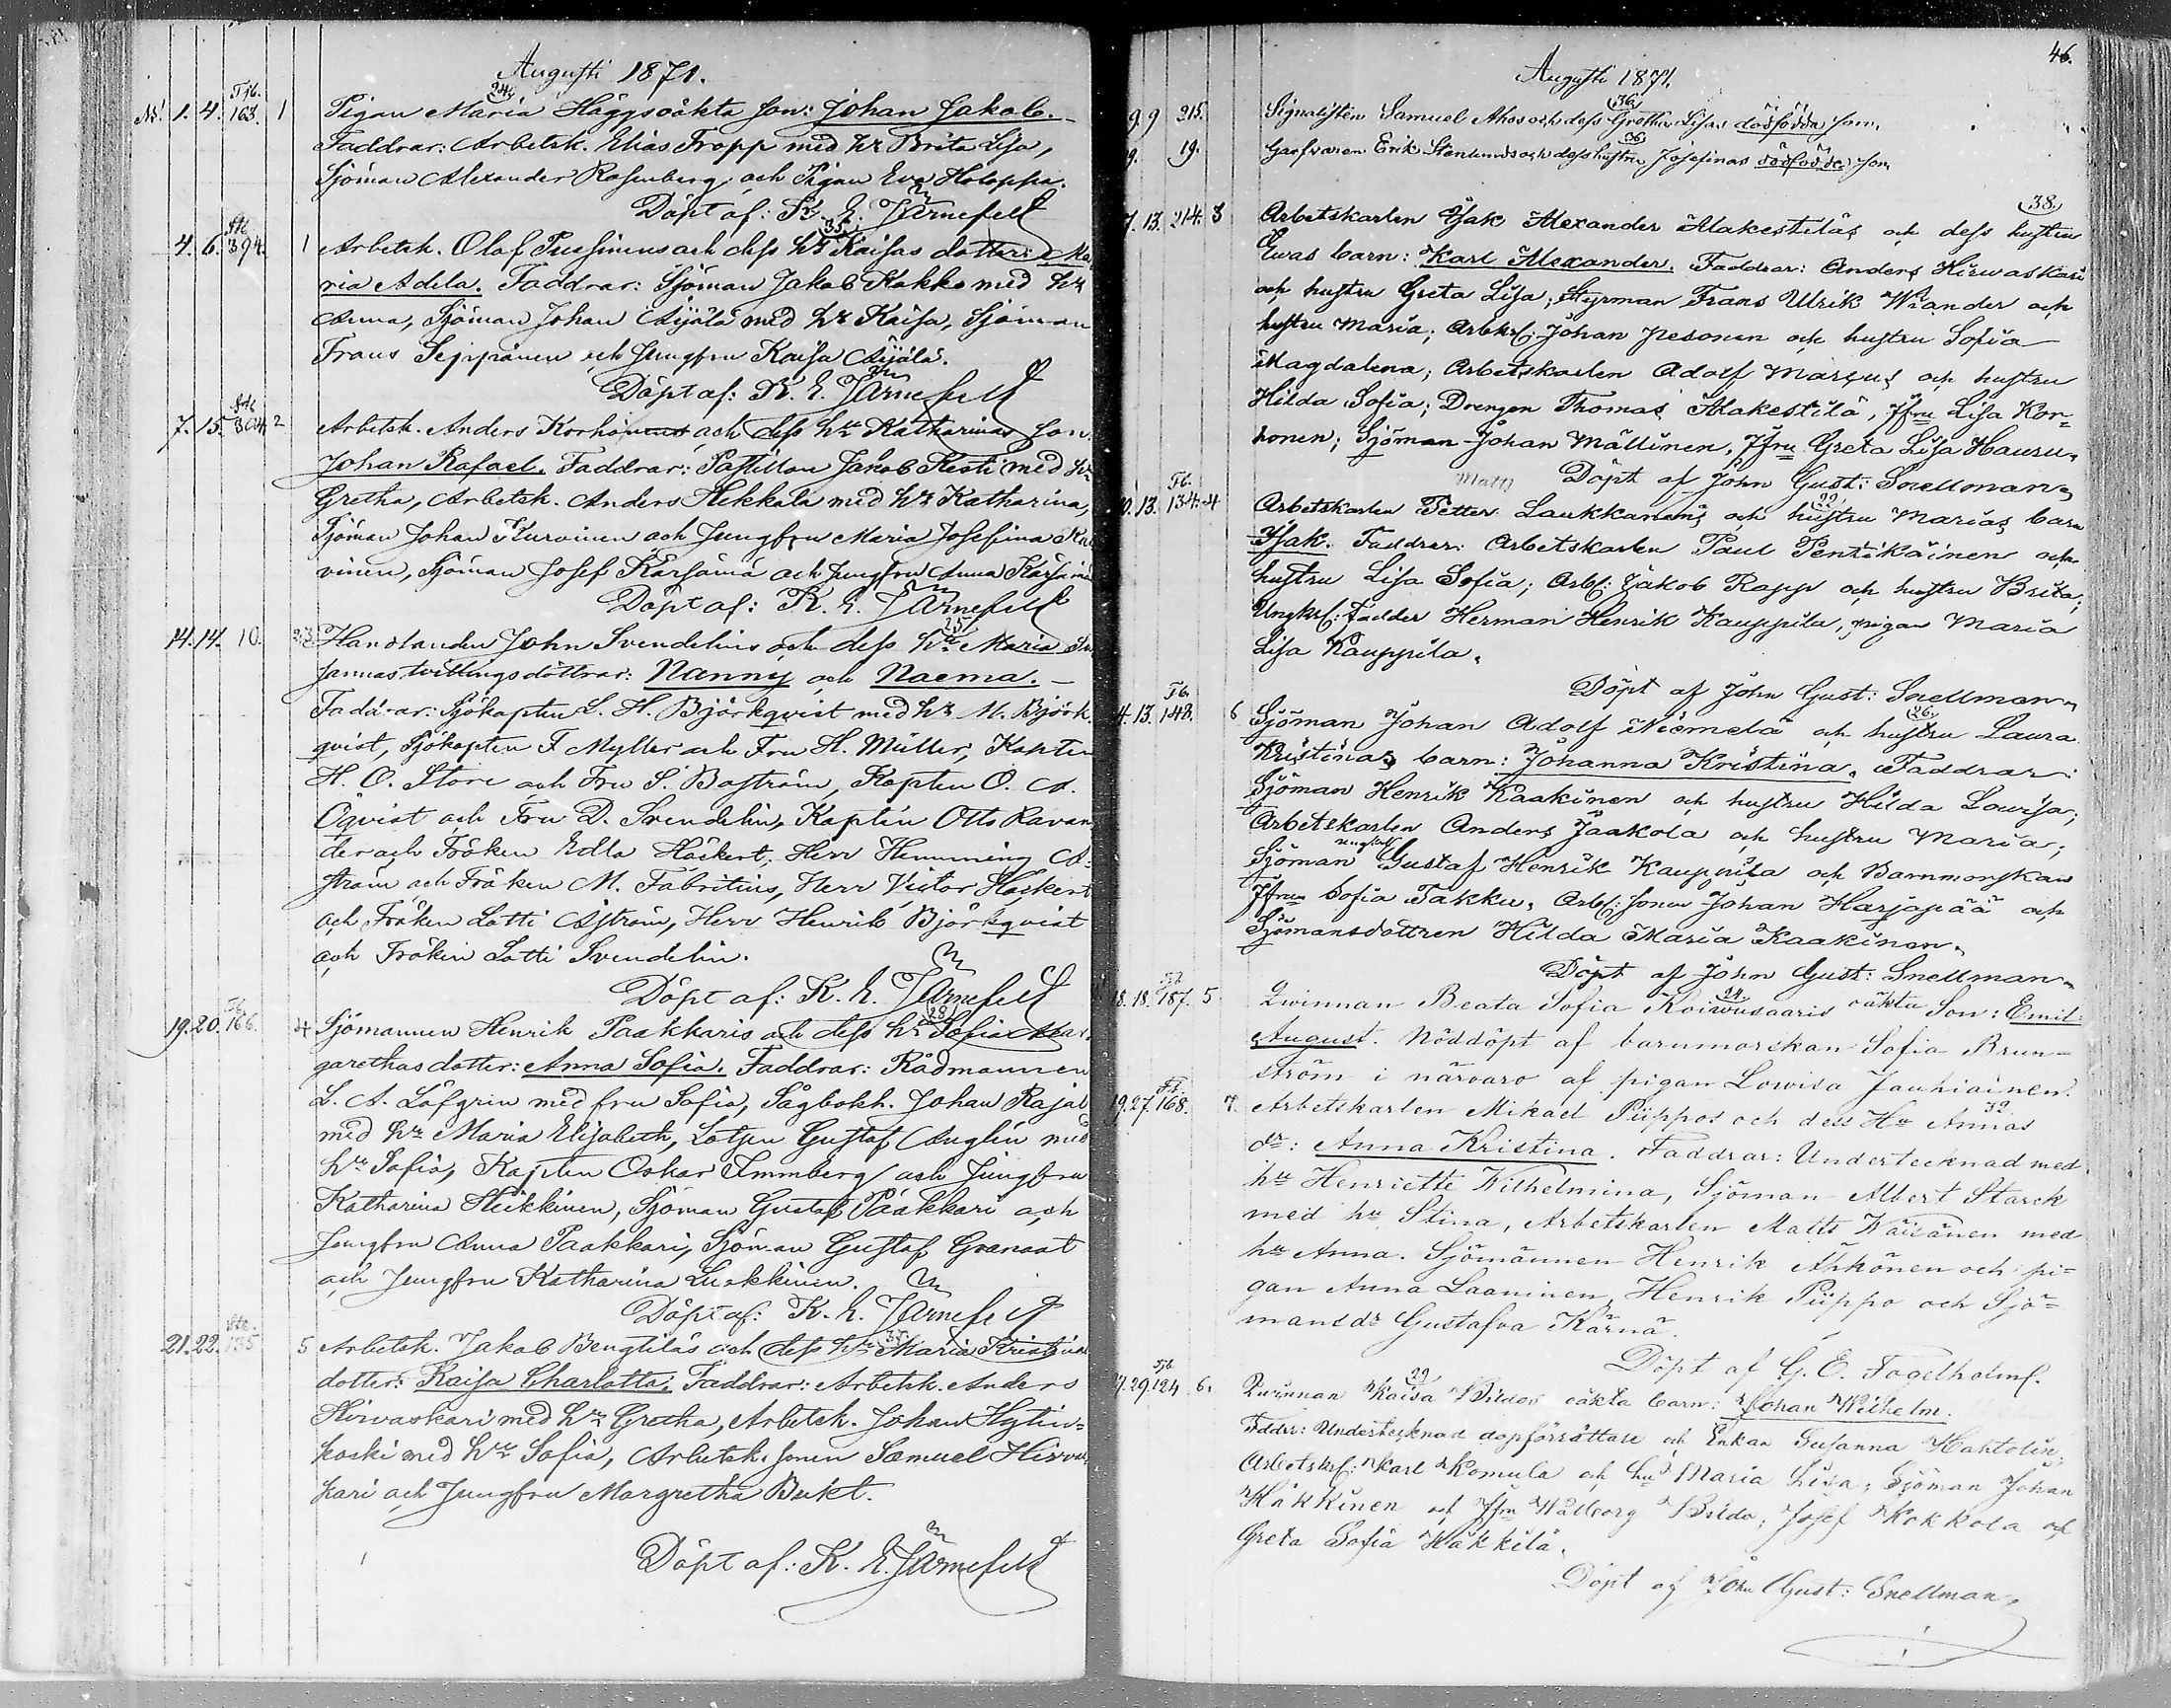 Augusti 1871.
N:o 1. 4. Tjb. 163. 1 Pigan Maria Häggs oäkta son: Johan Jakob.
24
Faddrar: Arbetsk. Elias Tropp med hu Brita Lisa,
Sjöman Alexander Rosenberg och Pigan Eva Holappa.
Döpt af: K. E. Järnefelt
4. 6. 394. 1 Arbetsk. Olof Pussinens och dess hu Kaisas dotter: Ma
35
ria Adela. Faddrar: Sjöman Jakob Kokko med hu
Anna, Sjöman Johan Äijälä med hu Kaisa, Sjöman
Frans Seppänen och Jungfru Kaisa Äijälä.
Döpt af: K. E. Järnefelt
7. 15. 304. 2 Arbetsk. Anders Korhonens och dess hu Katharinas son
Johan Rafael. Faddrar: Postillon Jakob Kesti med hu
Gretha, Arbetsk. Anders Hekkala med hu Katharina,
Sjöman Johan Kurvinen och Jungfru Maria Josefina Kur
vinen, Sjöman Josef Kärsämä och Jungfru Anna Kärsämä
Döpt af: K. E. Järnefelt
14. 14. 10. 2,3 Handlanden John Svendelins och dess hu Maria Su
25
sannas tvillingsdöttrar: Nanny och Naema.
Faddrar: Sjökapten L. H. Björkqvist med hu M. Björk
qvist, Sjökapten F Myller och Fru H. Müller, Kapten
H. O. Store och Fru S. Boström, Kapten O. A.
Öqvist och Fru D. Svendelin, Kapten Otto Ravan
der och Fröken Edla Häckert, Herr Hemming A-
ström och Fröken M. Fabritius, Herr Victor Häckert
och Fröken Lotti Åström, Herr Henrik Björkqvist
och Fröken Lotti Svendelin.
Döpt af: K. E. Järnefelt
19. 20. 166. 4 Sjömannen Henrik Paakkaris och dess hu Sofia Mar
28
garethas dotter: Anna Sofia. Faddrar: Rådmannen
L. A. Löfgren med fru Sofia, Sågbokh. Johan Rajal
med hu Maria Elisabeth, Lotsen Gustaf Anglin med
hu Sofia, Kapten Oskar Immberg och Jungfru
Katharina Heikkinen, Sjöman Gustaf Paakkari och
Jungfru Anna Paakkari, Sjöman Gustaf Granaat
och Jungfru Katharina Luukkinen.
Döpt af: K. E. Järnefelt
21. 22. 135. 5 Arbetsk. Jakob Bengtiläs och dess hu Maria Kristinas
35
dotter: Kaisa Charlotta. Faddrar: Arbetsk. Anders
Hirvaskari med hu Gretha, Arbetsk. Johan Hytin-
koski med hu Sofia, Arbetsk. sonen Samuel Hirvas
kari och Jungfru Margretha Bukt.
Döpt af: K. E. Järnefelt
46.
Augusti 1871.
9. 9 215. Signalisten Samuel Ahos och dess Gretha Lisas dödfödda son.
36
9. 19. Garfvaren Erik Stenlunds och dess hustru Josefinas dödfödde son.
36
38
7. 13. 214. 3 Arbetskarlen Isak Alexander Alakestiläs och dess hustru
Evas barn: Karl Alexander. Faddrar: Anders Hirvaskari
och hustru Greta Lisa; Styrman Frans Ulrik Wiander och
hustru Maria; Arbkrl: Johan Pesonen och hustru Sofia
Magdalena; Arbetskarlen Adolf Marcus och hustru
Hilda Sofia; Drengen Thomas Alakestilä, Jfru Lisa Kor-
honen; Sjöman Johan Mällinen, Jfru Greta Lisa Hauru.
Döpt af John Gust: Snellman.
Matts
10. 13. Tb. 134. 4 Arbetskarlen Petter Laukkanens och hustru Marias barn
22
Isak. Faddrar: Arbetskarlen Paul Pentikäinen och
hustru Lisa Sofia; Arbk: Jakob Rapp och hustru Brita;
Ungkrl: Fadder Herman Henrik Kauppila, pigan Maria
Lisa Kauppila.
Döpt af John Gust: Snellman.
4. 13. Tb. 148. 6 Sjöman Johan Adolf Niemelä och hustru Laura
26
Kristinas barn: Johanna Kristina. Faddrar:
Sjöman Henrik Kaakinen och hustru Hilda Lowisa;
Arbetskarlen Anders Jaakola och hustru Maria;
Sjöman Gustaf Henrik Kauppila och Barnmorskan
Jfrun Sofia Takku, Arbk: sonen Johan Harjapää och
Sjömansdottren Hilda Maria Kaakinen.
Döpt af John Gust: Snellman.
18. 18. 187. 5 Qvinnan Beata Sofia Koivusaaris oäkta Son: Emil
24
August. Nöddöpt af barnmorskan Sofia Brun-
ström i närvaro af pigan Lowisa Jauhiainen.
19. 27. 168. 7. Arbetskarlen Mikael Piippos och dess Hu Annas
32
dr: Anna Kristina. Faddrar: Undertecknad med
hu Henriette Wilhelmina, Sjöman Albert Starck
med hu Stina, Arbetskarlen Matts Wäisänen med
hu Anna. Sjömannen Henrik Ähkönen och pi-
gan Anna Laaninen, Henrik Piippo och Sjö-
mansdr Gustafva Kärnä.
Döpt af G. E. Fagelholm.
27. 29. Tjb 124. 6. Qvinnan Kaisa Bildos oäkta barn: Johan Wilhelm.
29
Faddr: Undertecknad dopförrättare och Enkan Susanna Haktolin,
Arbetskrl: Karl Komula och hu Maria Lisa; Sjöman Johan
Häkkinen och Jfru Walborg Bildo, Josef Kokkola och
Greta Sofia Häkkilä.
Döpt af John Gust: Snellman.